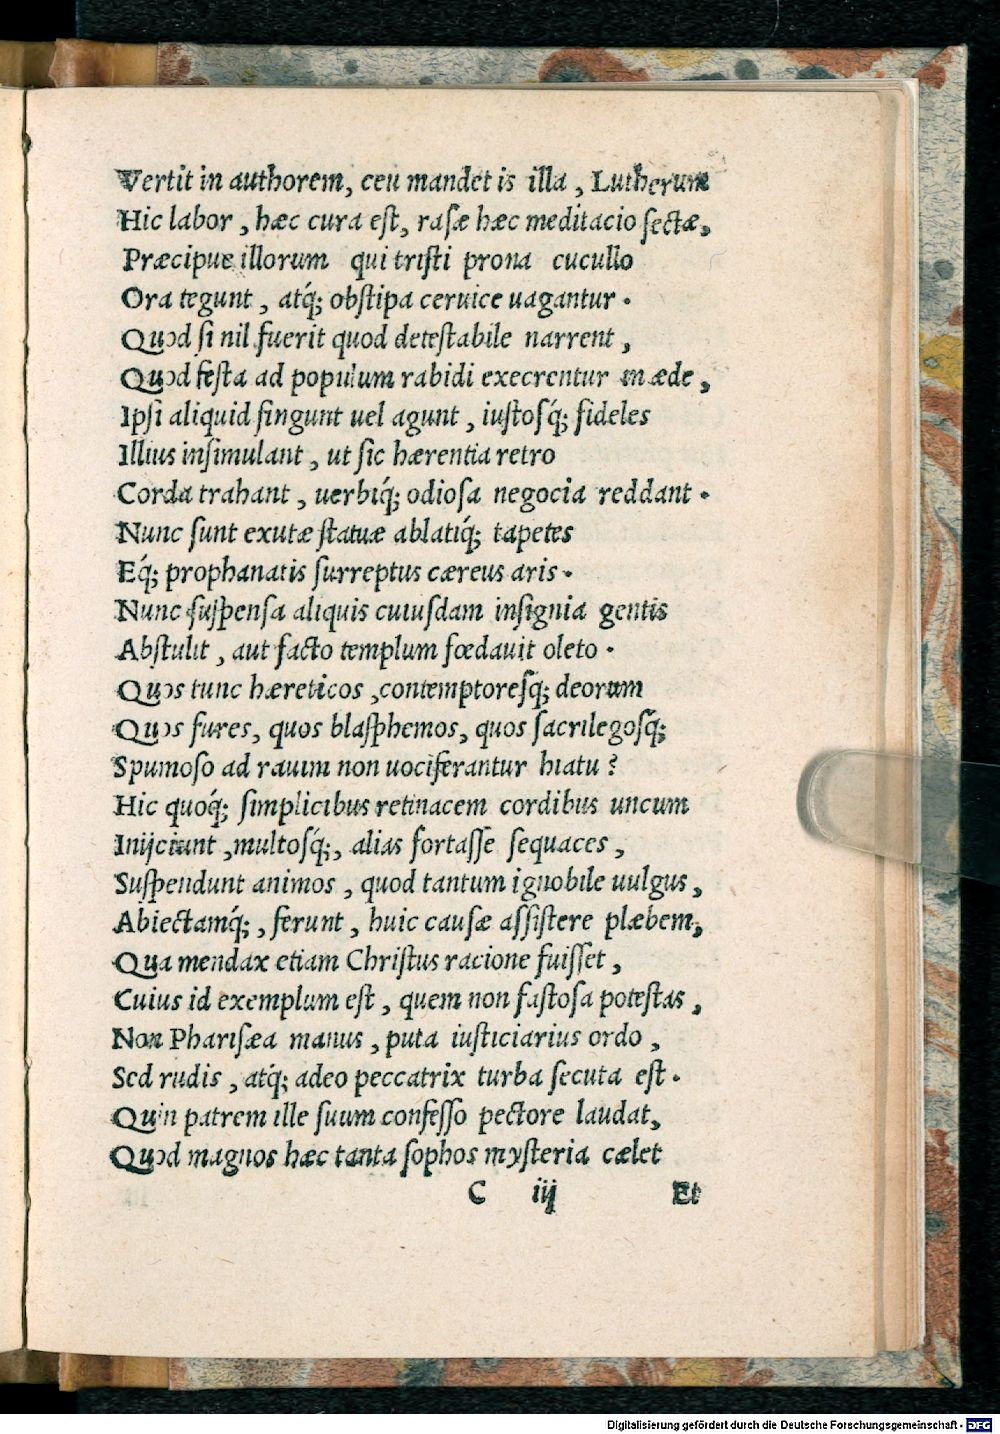 Vertit in authorem, ceu mandet is illa, Lutherum
Hic labor, hæc cura eſt, raſæ hæc meditacio ſectæ,
Præcipue illorum qui triſti prona cucullo
Ora tegunt, atq́; obſtipa ceruice uagantur.
Quod ſi nil fuerit quod deteſtabile narrent,
Quod feſta ad populum rabidi execrentur in æde,
Ipſi aliquid fingunt uel agunt, iuſtoſq́; fideles
Illius inſimulant, ut ſic hærentia retro
Corda trahant, uerbiq́; odioſa negocia reddant.
Nunc ſunt exutæ ſtatuæ ablatiq́; tapetes
Eq́; prophanatis ſurreptus cæreus aris.
Nunc ſuſpenſa aliquis cuiuſdam inſignia gentis
Abſtulit, aut facto templum fœdauit oleto.
Quos tunc hæreticos, contemptoreſq́; deorum
Quos fures, quos blaſphemos, quos ſacrilegoſq́;
Spumoſo ad rauim non uociferantur hiatu?
Hic quoq́; ſimplicibus retinacem cordibus uncum
Inijciunt, multoſq́;, alias fortaſſe ſequaces,
Suſpendunt animos, quod tantum ignobile uulgus,
Abiectamq́;, ferunt, huic cauſæ aſſiſtere plæbem,
Qua mendax etiam Chriſtus racione fuiſſet,
Cuius id exemplum eſt, quem non faſtoſa poteſtas,
Non Phariſæa manus, puta iuſticiarius ordo,
Sed rudis, atq́; adeo peccatrix turba ſecuta eſt.
Quin patrem ille ſuum confeſſo pectore laudat,
Quod magnos hæc tanta ſophos myſteria cælet
C iij Et
Digitalisierung gefördert durch die Deutsche Forschungsgemeinschaft - DFG